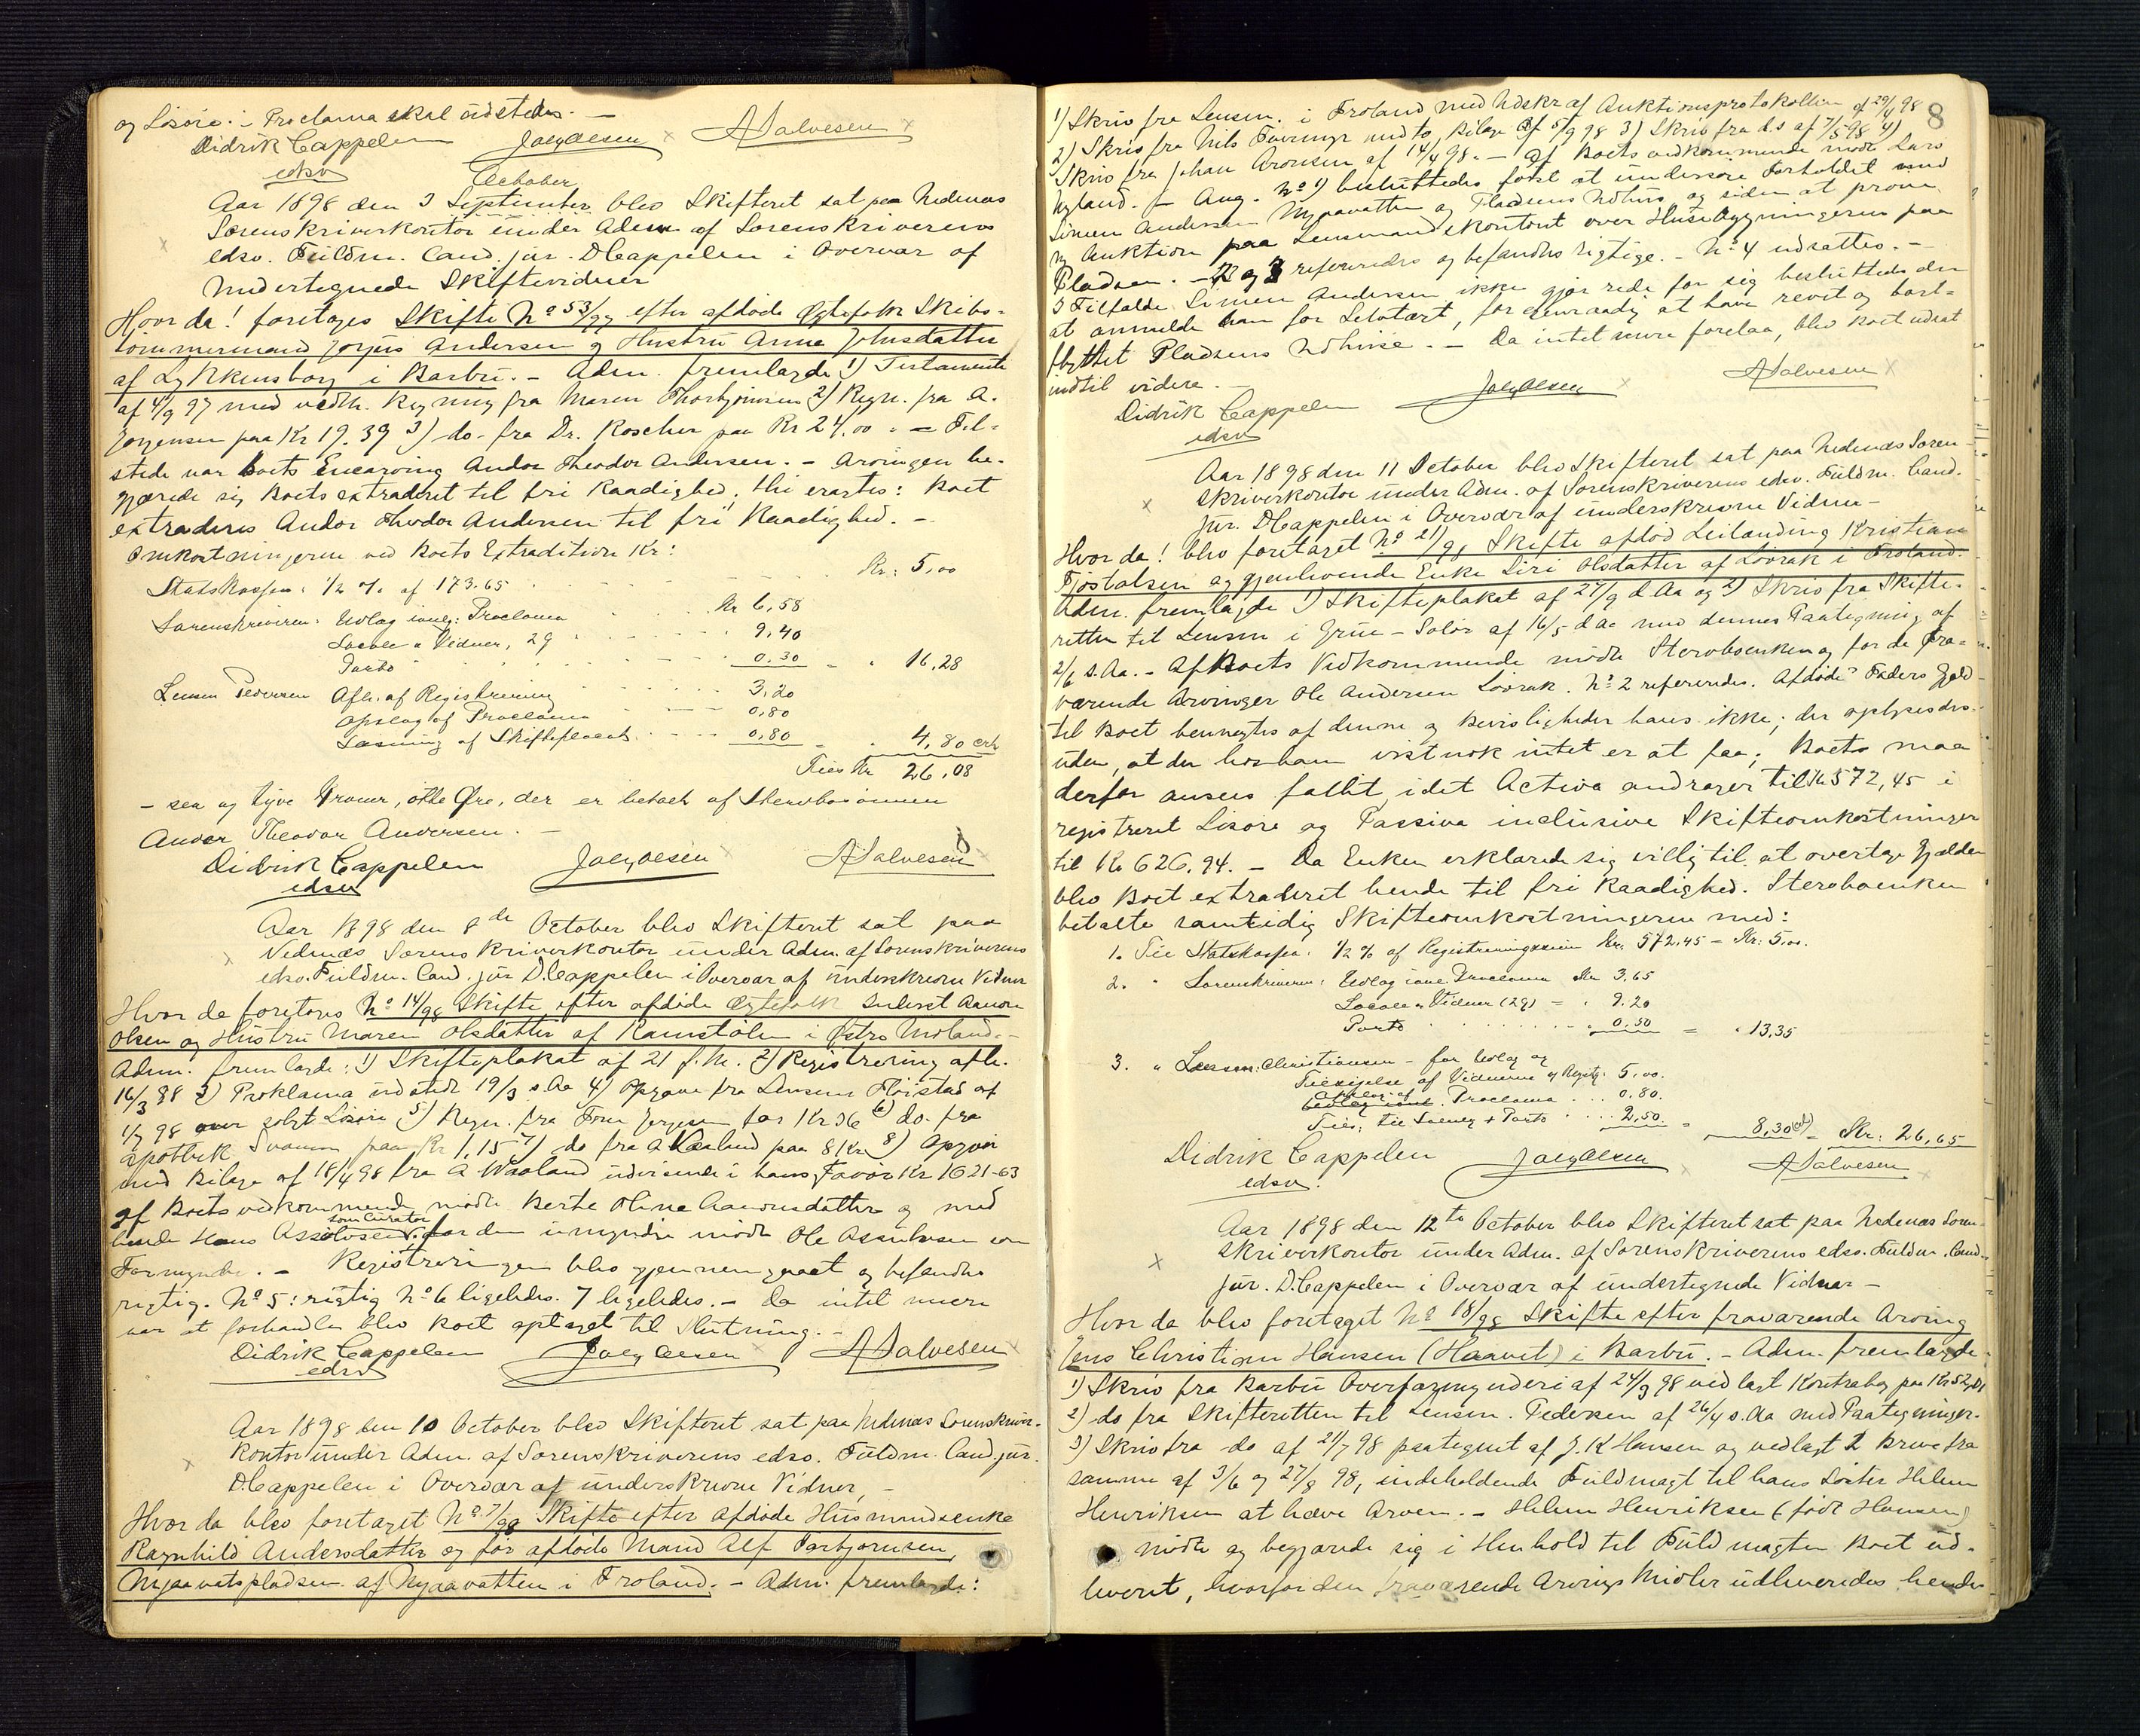 og Løsøre. i Proclama skal udstedes. —
Didrik Cappelen
edsv
JolyOlsen
ASalvesen
October
Aar 1898 den 3 September blev Skifteret sat paa Nedenæs
Sorenskriverkontor under Adm af Sorenskriverens
edsv. Fuldm. Cand. jur. DCappelen i Overvær af
undertegnede Skiftevidner
Hvor da! foretoges Skifte No 53/97 efter afdøde Ægtefolk Skibs-
tømmermand Jørgen Andersen og Hustru Anne Johnsdatter
af Lykkensborg i Barbu. — Adm. fremlagde 1) Testamente
af 4/9 97 med vedh. Regning fra Maren Thorbjørnsen 2) Regn. fra A.
Jørgensen paa Kr 19.39 3) do. fra Dr. Roscher paa Kr 24.00. — Til-
stede var boets Enearving Andor Theodor Andersen. — Arvingen be-
gjærede sig Boets extraderet til fri Raadighed, thi eragtes: Boet
extraderes Andor Theodor Andersen til fri Raadighed. —
Omkostningerne ved Boets Extradition Kr:
Statskassen: 1/2 % af 173.65 Kr: 5,00
Sorenskriveren: Udlag incl: Proclama Kr 6,58
Locale & Vidner, 2g 9,40
Porto 0.30 = " 16,28
Lensm Pedersen Afh. af Registrering 3,20
Opslag af Proclama 0,80
Læsning af Skifteplacat 0,80 = 4,80
Tils Kr 26,08
— sex og tyve Kroner, otte Øre, der er betalt af Stervbosønnen
Andor Theodor Andersen. —
Didrik Cappelen
edsv
JolyOlsen
ASalvesen
Aar 1898 den 8de October blev Skifteret sat paa
Nedenæs Sorenskriverkontor under Adm. af Sorenskriverens
edsv. Fuldm. Cand. jur D.Cappelen i Overvær af underskrevne Vidner
Hvor da foretoges No 14/98 Skifte efter afdøde Ægtefolk Inderst Aanon
Olsen og Hustru Maren Olsdatter af Ramstølen i Østre Moland. —
Adm. fremlagde: 1) Skifteplakat af 21 f.M. 2) Registrering afh.
16/3 98 3) Proklama udstedt 19/3 s.Aa 4) Opgave fra Lensm Høistad af
1/7 98 over solgt Løsøre 5) Regn. fra Tom Jørgensen for Kr 36 6) do. fra
Apothek Svanen paa Kr 1,15 7) do fra A Vaaland paa 8 Kr 8) Opgjør
med Bilage af 18/4 98 fra A Waaland udvisende i hans Favør Kr 1621-63
Af Boets vedkommende mødte Berte Oline Aanonsdatter og med
hende Hans Assulvsen som Curator, for den umyndige mødte Ole Assulvsen som
Formynder. — Registreringen blev gjennemgaaet og befandtes
rigtig. No 5: rigtig No 6 ligeledes. 7 ligeledes. — Da intet mere
var at forhandle blev Boet optaget til Slutning. —
Didrik Cappelen
edsv
JolyOlsen
ASalvesen
Aar 1898 den 10 October blev Skifteret sat paa Nedenæs Sorenskriver-
kontor under Adm. af Sorenskriverens edsv. Fuldm. Cand. jur.
DCappelen i Overvær af underskrevne Vidner, —
Hvor da blev foretaget No 7/98 Skifte efter afdøde Husmandsenke
Ragnhild Andersdatter og før afdøde Mand Alf Torbjørnsen,
Mjaavatspladsen af Mjaavatten i Froland. — Adm. fremlagde:
8
1) Skriv fra Lensm. i Froland med Udskr af Auktionsprotokollen af 29/4 98
2) Skriv fra Nils med to Bilage af 5/9 98 3) Skriv fra ds af 7/5 98 4)
Skriv fra Johan Aronsen af 14/4 98. — Af Boets vedkommende mødte Lars
Nyland. — Ang. No 1) besluttedes først at undersøge Forholdet med
Simen Andersen Mjaavatten og Pladsens Udhus og siden at prøve
ny Auktion paa Lensmandskontoret over Husebygningerne paa
Pladsen. — 2 og 3 refereredes og befandtes rigtige. — No 4 udsattes. —
I Tilfælde Simen Andersen ikke gjør rede for sig besluttedes den
at anmelde ham for Selvtægt, for egenraadig at have revet og bort-
flyttet Pladsens Udhuse. — Da intet mere forelaa, blev Boet udsat
indtil videre. —
Didrik Cappelen
edsv
JolyOlsen
ASalvesen
Aar 1898 den 11 October blev Skifteret sat paa Nedenæs Soren-
skriverkontor under Adm. af Sorenskriverens edsv. Fuldm. Cand.
jur. DCappelen i Overvær af underskrevne Vidner —
Hvor da! blev foretaget No 21/98 Skifte afdød Leilænding Kristian
Fjøstølsen og gjenlevende Enke Siri Olsdatter af Løvrak i Froland.
Adm. fremlagde 1) Skifteplakat af 27/9 d.Aa og 2) Skriv fra Skifte-
retten til Lensm i Grue - Solør af 16/5 d.Aa med dennes Paategning af
2/6 s.Aa. — Af Boets Vedkommende mødte Stervboenken og for de fra-
værende Arvinger Ole Andersen Løvrak. No 2 refereredes. Afdødes Faders Gjæld
til Boet benegtes af denne og Bevisligheder haves ikke; der oplyses des-
uden, at der hos ham vistnok intet er at faa; Boets maa
derfor ansees fallit, idet Activa andrager til Kr 572,45 i
registreret Løsøre og Passiva inclusive Skifteomkostninger
til Kr 626.94. — Da Enken erklærede sig villig til at overtage Gjælden
blev Boet extraderet hende til fri Raadighed. Stervboenken
betalte samtidig Skifteomkostningerne med:
1. Til Statskassen: 1/2 % af Registreringssum Kr. 572.45 — Kr: 5,00.
2. " Sorenskriveren: Udlag incl. Proclama Kr 3.65
Locale & Vidner (2g) = " 9.20
Porto 0,50 = " 13,35
3. " Lensm: Christiansen — for Udlag og
Tilsigelse af Vidnerne og Registg: 5,00.
Opslag af Proclama 0.80.
Tils: til Lensm + Porto 2.50 = 8,30 = Kr: 26,65
Didrik Cappelen
edsv.
JolyOlsen
ASalvesen
Aar 1898 den 12te October blev Skifteret sat paa Nedenæs Soren-
skriverkontor under Adm. af Sorenskriverens edsv. Fuldm. Cand.
jur. D.Cappelen i Overvær af undertegnede Vidner —
Hvor da blev foretaget No 18/98 Skifte efter fraværende Arving
Jens Christian Hansen (Haavet) i Barbu. — Adm. fremlagde
1) Skriv fra Barbu Overformynderi af 24/3 98 vedlagt Kontrabog paa Kr
2) do fra Skifteretten til Lensm. Pedersen af 26/4 s.Aa med Paategninger.
3) Skriv fra do af 21/7 98 paategnet af J. K Hansen og vedlagt 2 Breve fra
samme af 3/6 og 27/8 98, indeholdende Fuldmagt til hans Søster Helene
Henriksen at hæve Arven. — Helene Henriksen (født Hansen)
mødte og begjærede sig i Henhold til Fuldmagten Boet ud-
leveret, hvorfor den fraværende Arvings Midler udleveredes hende